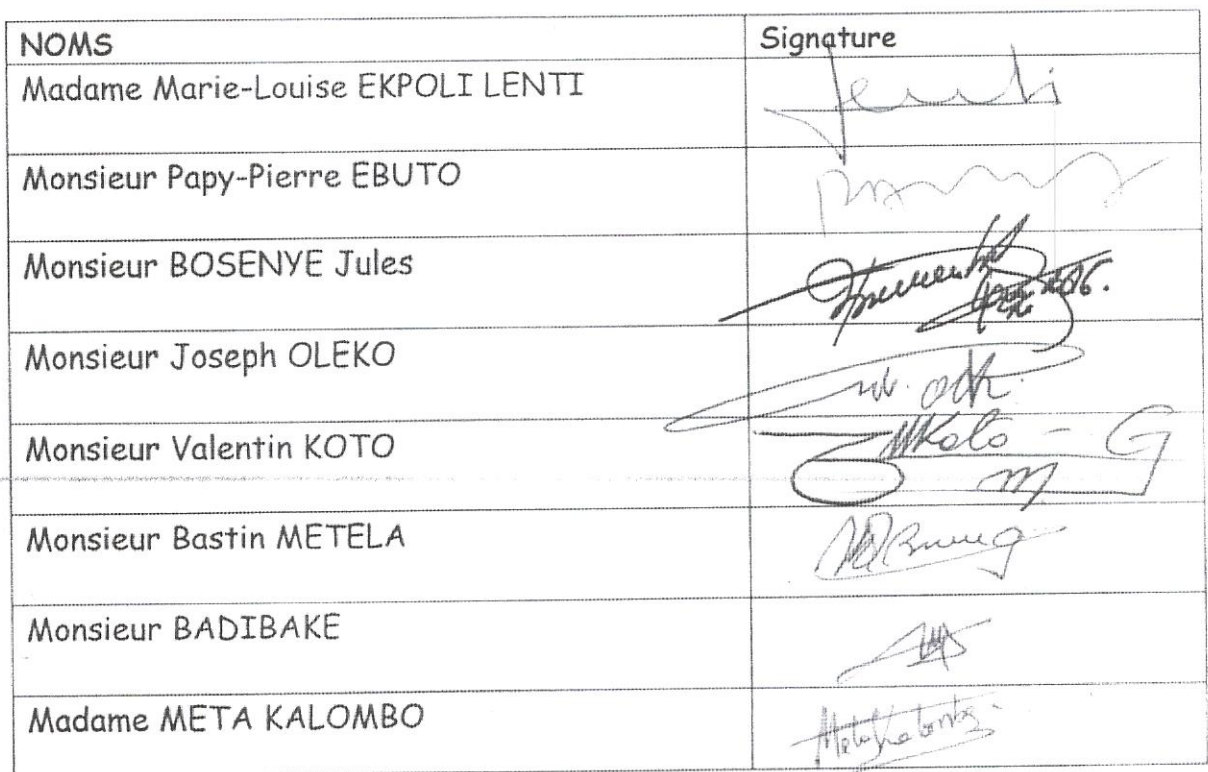 NOMS Signature
Madame Marie-Louise EKPOLI LENTI
Monsieur Papy-Pierre EBUTO
Monsieur BOSENYE Jules
Monsieur Joseph OLEKO
Monsieur Valentin KOTO
Monsieur Bastin METELA
Monsieur BADIBAKE
Madame META KALOMBO